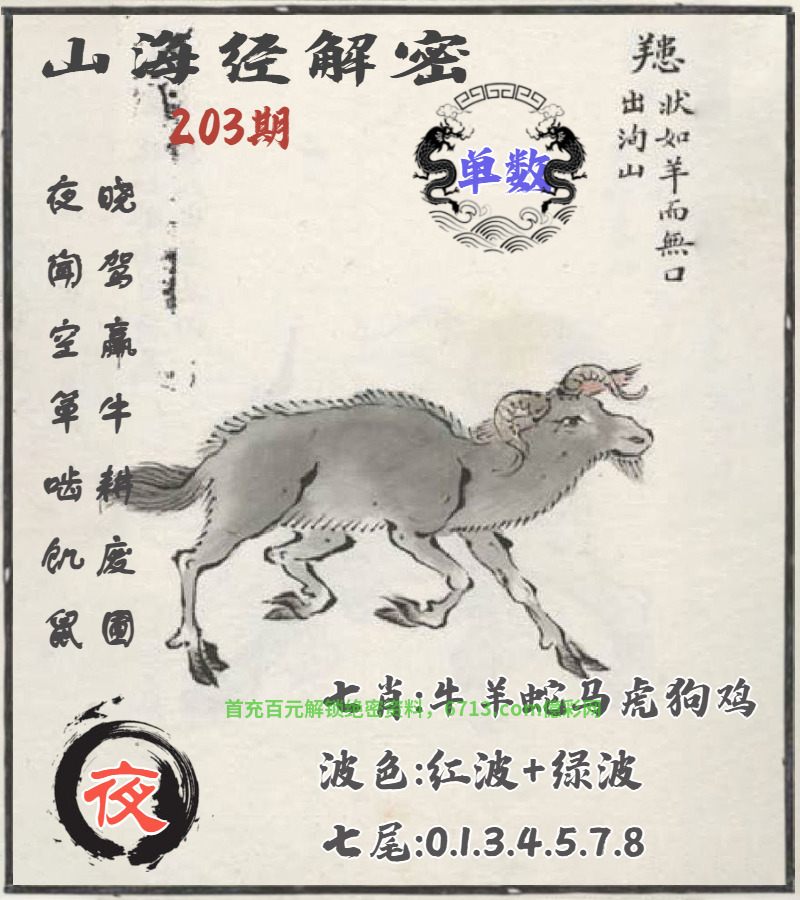 山海经解密
203期
单数
䍺
状如羊而無口
出洵山
晓驾羸牛耕废圃
夜闻空箪啮饥鼠
七肖:牛羊蛇马虎狗鸡
首充百元解锁绝密资料，6713.com信彩网
波色:红波+绿波
夜
七尾:0.1.3.4.5.7.8